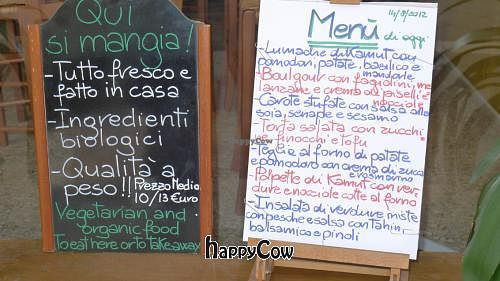 QUI
si mangia!
-Tutto fresco e
fatto in casa
-Ingredienti
biologici
-Qualità a
peso!! Prezzo Medio
10/13 €uro
Vegetarian and
organic food
To eat here or to take away
14/8/2012
Menù di oggi
-Lumache di Kamut con
pomodori, patate, basilico e
mandorle
-Boulgour con fagiolini, me
lanzane e crema di piselli e
nocciole
-Carote stufate con salsa alla
soia, senape e sesamo
-Torta salata con zucchi
ne, finocchi e tofu
-Teglia al forno di patate
e pomodoro con crema di zucca
e rosmarino
-Polpette di Kamut con ver
dure e nocciole cotte al forno
-Insalata di verdure miste
con pesche e salsa con tahin,
balsamico e pinoli
HappyCow
HappyCow